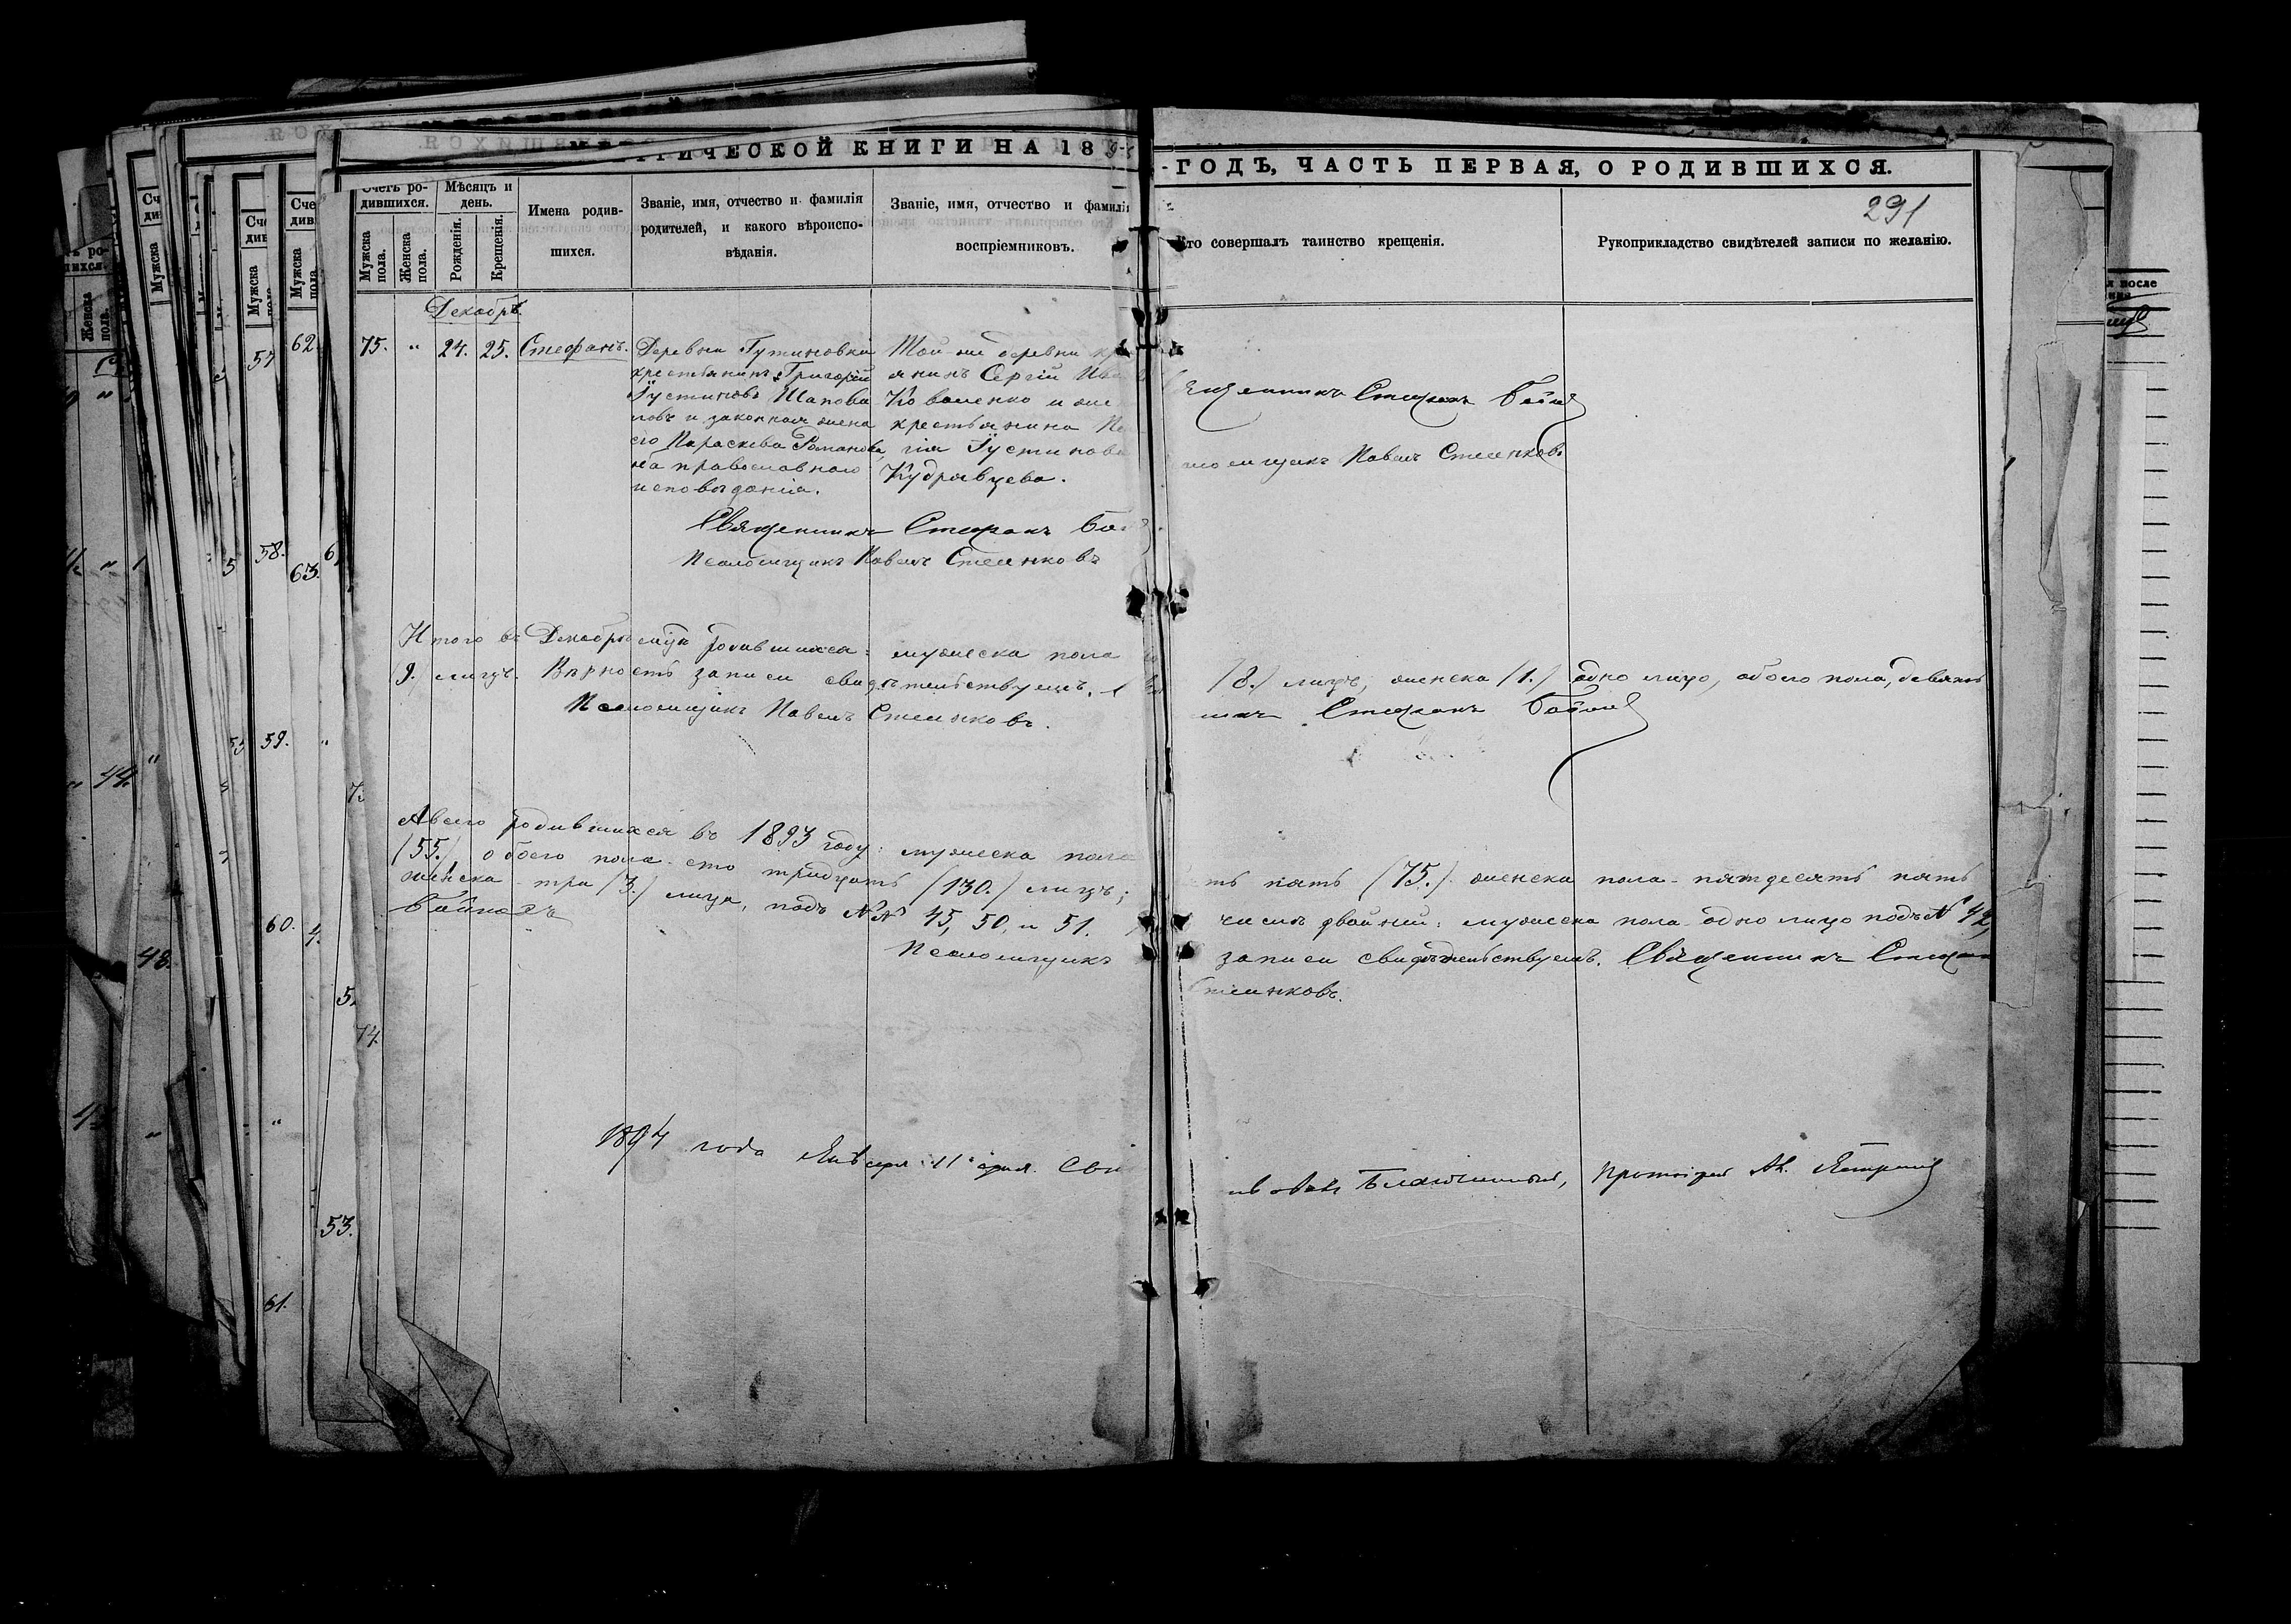 МЕТРИЧЕСКОЙ КНИГИ НА 1893
ГОДЪ, ЧАСТЬ ПЕРВАЯ, О РОДИВШИХСЯ.
291
Счетъ ро-
дившихся.
Мужска
пола.
Женска
пола.
Мѣсяцъ и
день.
Рожденія.
Крещенія.
Имена родив-
шихся.
Званіе, имя, отчество и фамилія
родителей, и какого вѣроиспо-
вѣданія.
Званіе, имя, отчество и фамилія
воспріемниковъ.
Кто совершалъ таинство крещенія.
Рукоприкладство свидѣтелей записи по желанію.
Декабрь
75. " 24. 25. Стефанъ.
Деревни Гутиновки
крестьянинъ Григорій
Іустиновъ Шапова
ловъ и законная жена
его Параскева Романова,
оба православнаго
исповѣданія.
Той же деревни кре
янинъ Сергій Ива
Коваленко и жена
крестьянина
гія Іустинова
Кудрявцева.
Священникъ Стефанъ
Псаломщикъ Павелъ Стеенковъ
Священникъ Стефанъ
Псаломщикъ Павелъ Стеенковъ
Итого въ Декабрѣ родившихся: мужеска пола
/8./ лицъ, женска /1./ одно лицо, обоего пола, девять
/9./ лицъ. Вѣрность записи свидѣтельствуемъ.
никъ Стефанъ
Псаломщикъ Павелъ Стеенковъ.
А всего родившихся въ 1893 году: мужеска пола
ть пять /75./ женска пола - пятдесять пять
/55./, обоего пола - сто тридцать /130./ лицъ;
числѣ двойней: мужеска пола одно лицо подъ № 42,
женска - три /3./ лица, подъ №№ 45, 50, и 51.
записи свидѣтельствуемъ. Священникъ Стефанъ
Псаломщикъ
Стеенковъ.
1894 года Января 11 дня.
Благочинный, Протоіерей
57
62.
58.
63.
59.
60.
61.
53.
74.
44.
48.